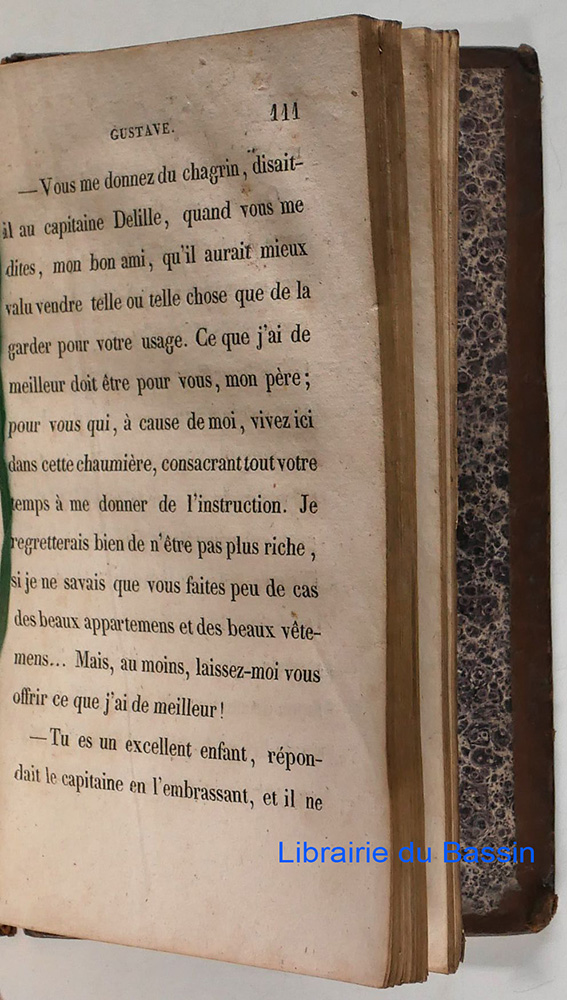 GUSTAVE. 111
—Vous me donnez du chagrin, disait-
il au capitaine Delille, quand vous me
dites, mon bon ami, qu'il aurait mieux
valu vendre telle ou telle chose que de la
garder pour votre usage. Ce que j'ai de
meilleur doit être pour vous, mon père;
pour vous qui, à cause de moi, vivez ici
dans cette chaumière, consacrant tout votre
temps à me donner de l'instruction. Je
regretterais bien de n'être pas plus riche,
si je ne savais que vous faites peu de cas
des beaux appartemens et des beaux vête-
mens... Mais, au moins, laissez-moi vous
offrir ce que j'ai de meilleur!
—Tu es un excellent enfant, répon-
dait le capitaine en l'embrassant, et il ne
Librairie du Bassin